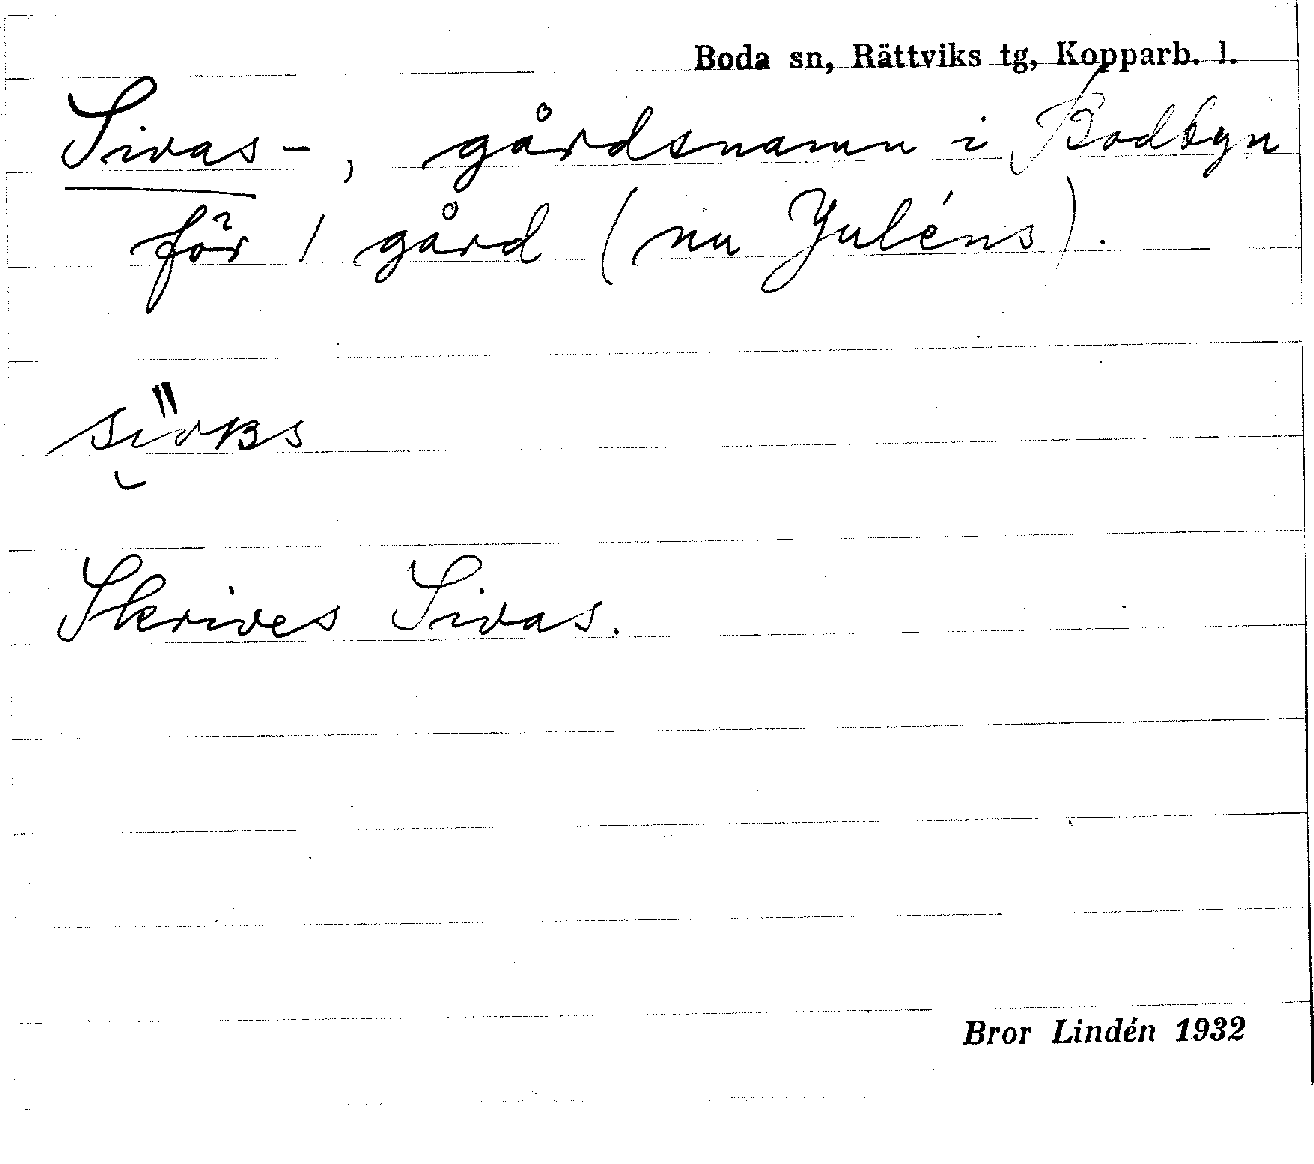 Boda sn, Rättviks tg, Kopparb. l.
Sivas-, gårdsnamn i Bodbyn
för 1 gård (nu Juléns).
Skrives Sivas.
Bror Lindén 1932